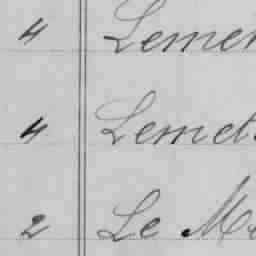 4 Lemer
4 Lemet
2 Le M